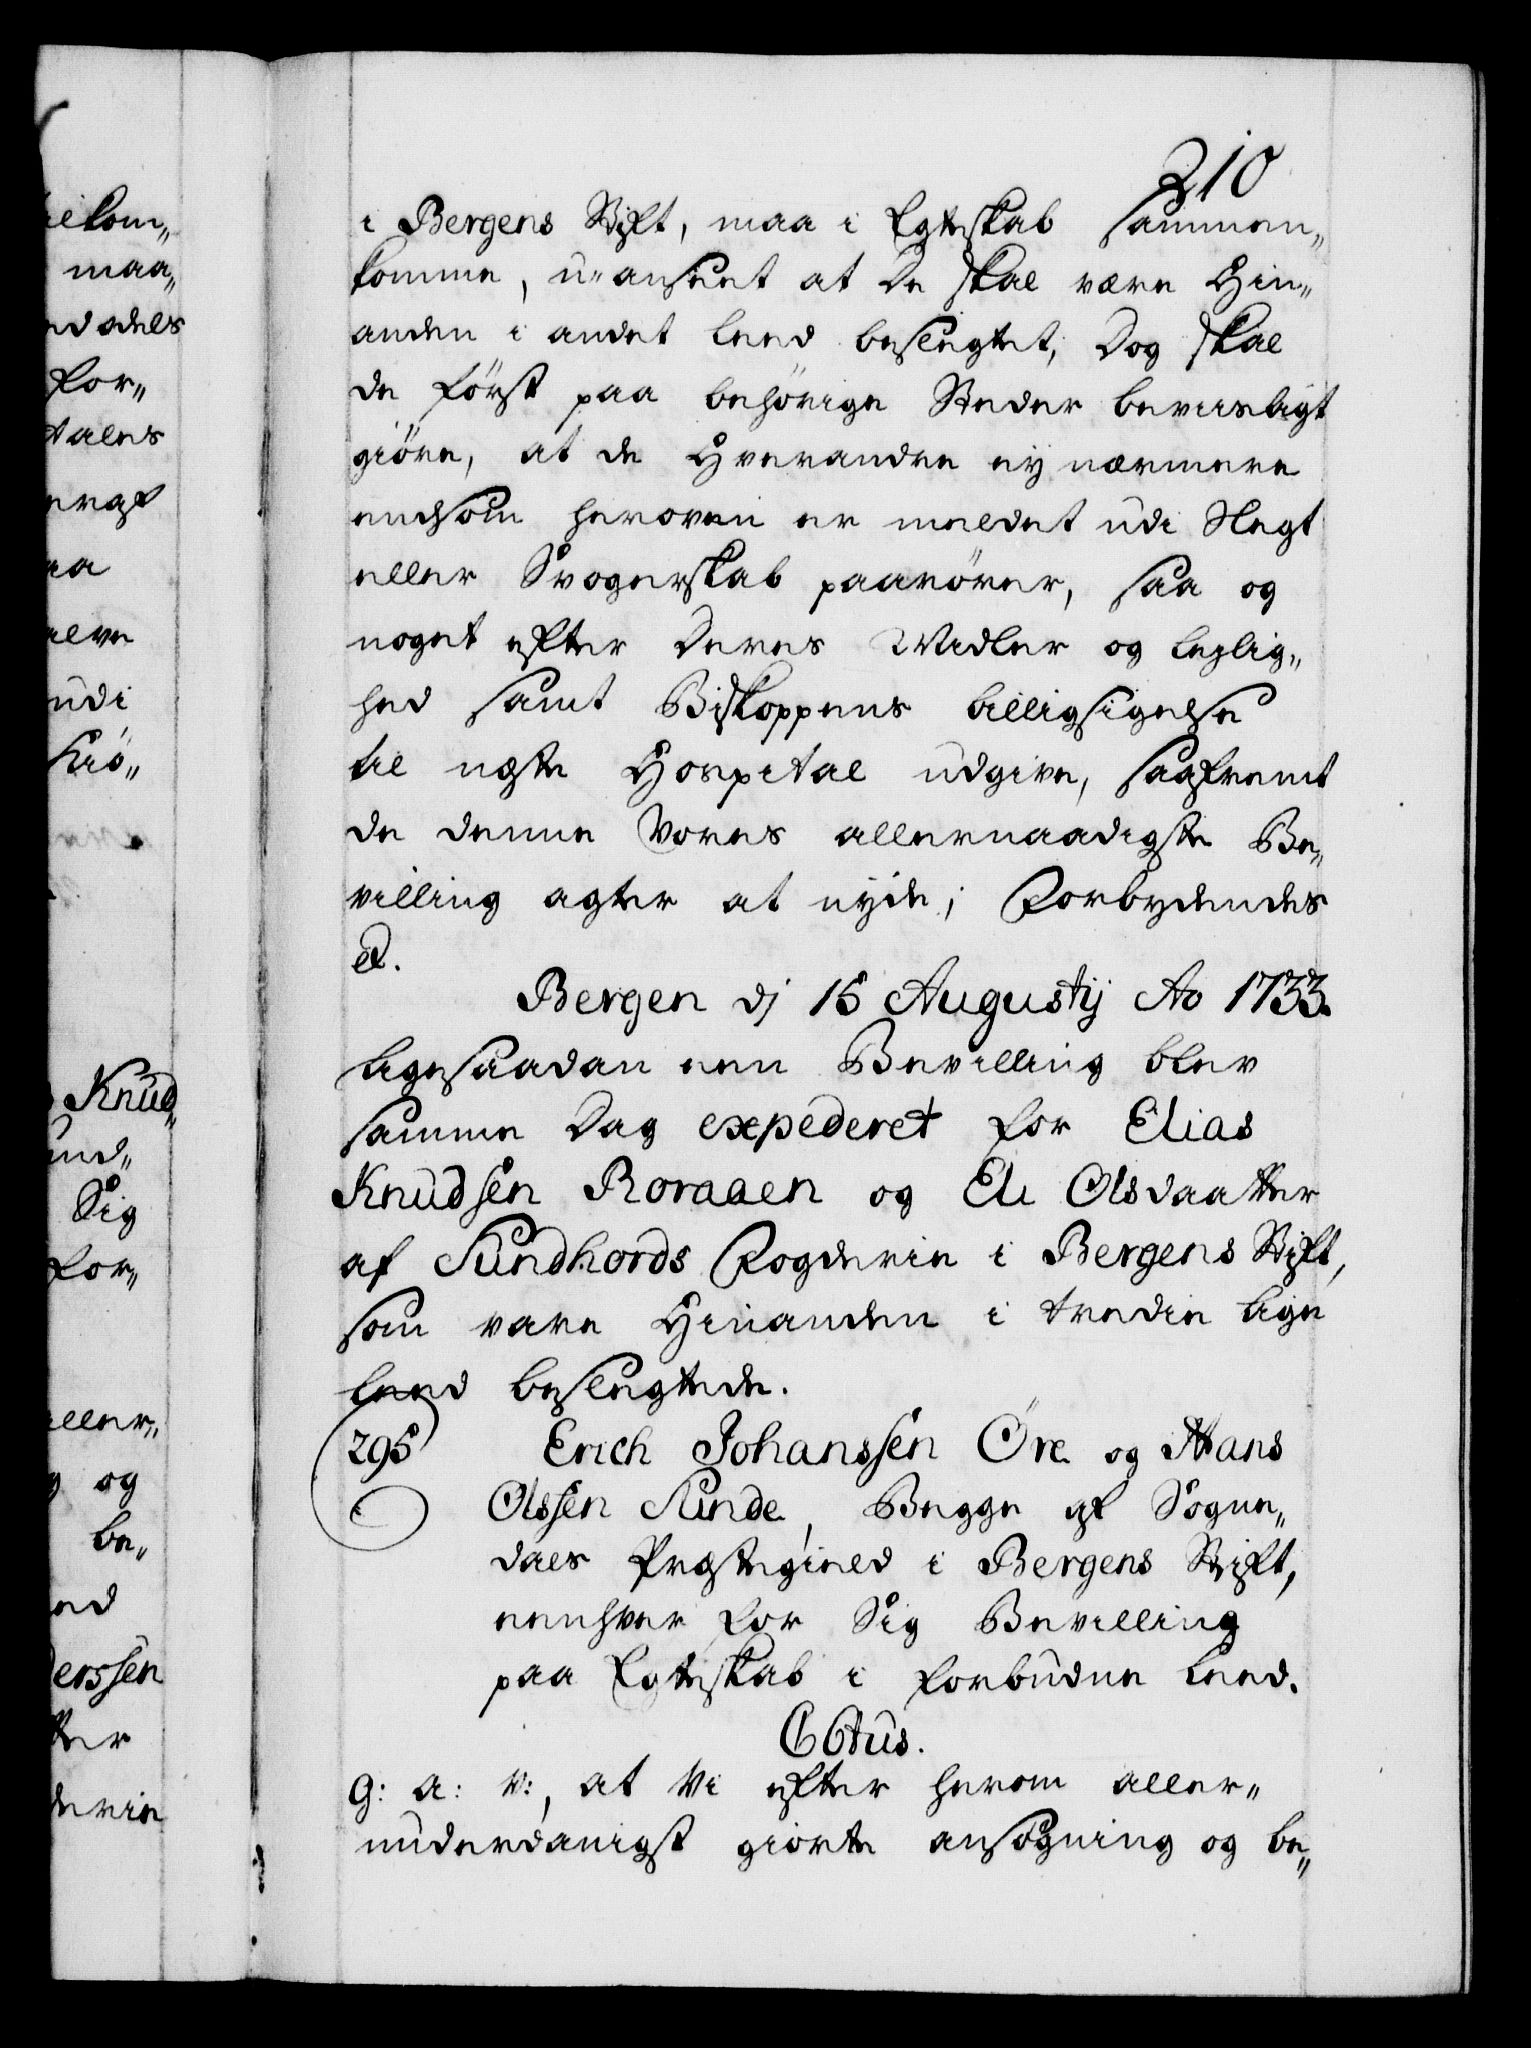 210
i Bergens Stift, maa i Egteskab sammen„
komme, u-anseet at De skal være Hin„
anden i andet Leed beslegtet, Dog skal
de först paa behörige Steder beviisligt
giöre, at de Hverandre ey nærmere
endsom heroven er meldet udi Slegt
eller Svogerskab paarörer, saa og
noget efter Deres Midler og leylig„
hed samt Biskoppens billigsigelse
til neste Hospital udgive, saafremt
de denne Vores allernaadigste Be„
villing agter at nyde; Forbydendes
et.
Bergen dj 15 Augustij Ao 1733.
ligesaadan een Bevilling blev
samme Dag expederet for Elias
Knudsen Roraaen og Eli Olsdaatter
af Sundhords Fogderie i Bergens Stift,
som vare Hinanden i tredie lige
Leed beslegtede.
295 Erich Johanssen Öre og Hans
Olssen Sunde, Begge af Sogne„
dals Præstegield i Bergens Stift,
eenhver for Sig Bevilling
paa Egteskab i forbudne Leed.
C6tus.
G: a: V:, at Vi efter herom aller„
underdanigst giorte ansøgning og be„
ilkom„
maa„
for„
udi
Knud„
und„
Sig
for„
eller„
og
be„
derssen
tter
derie